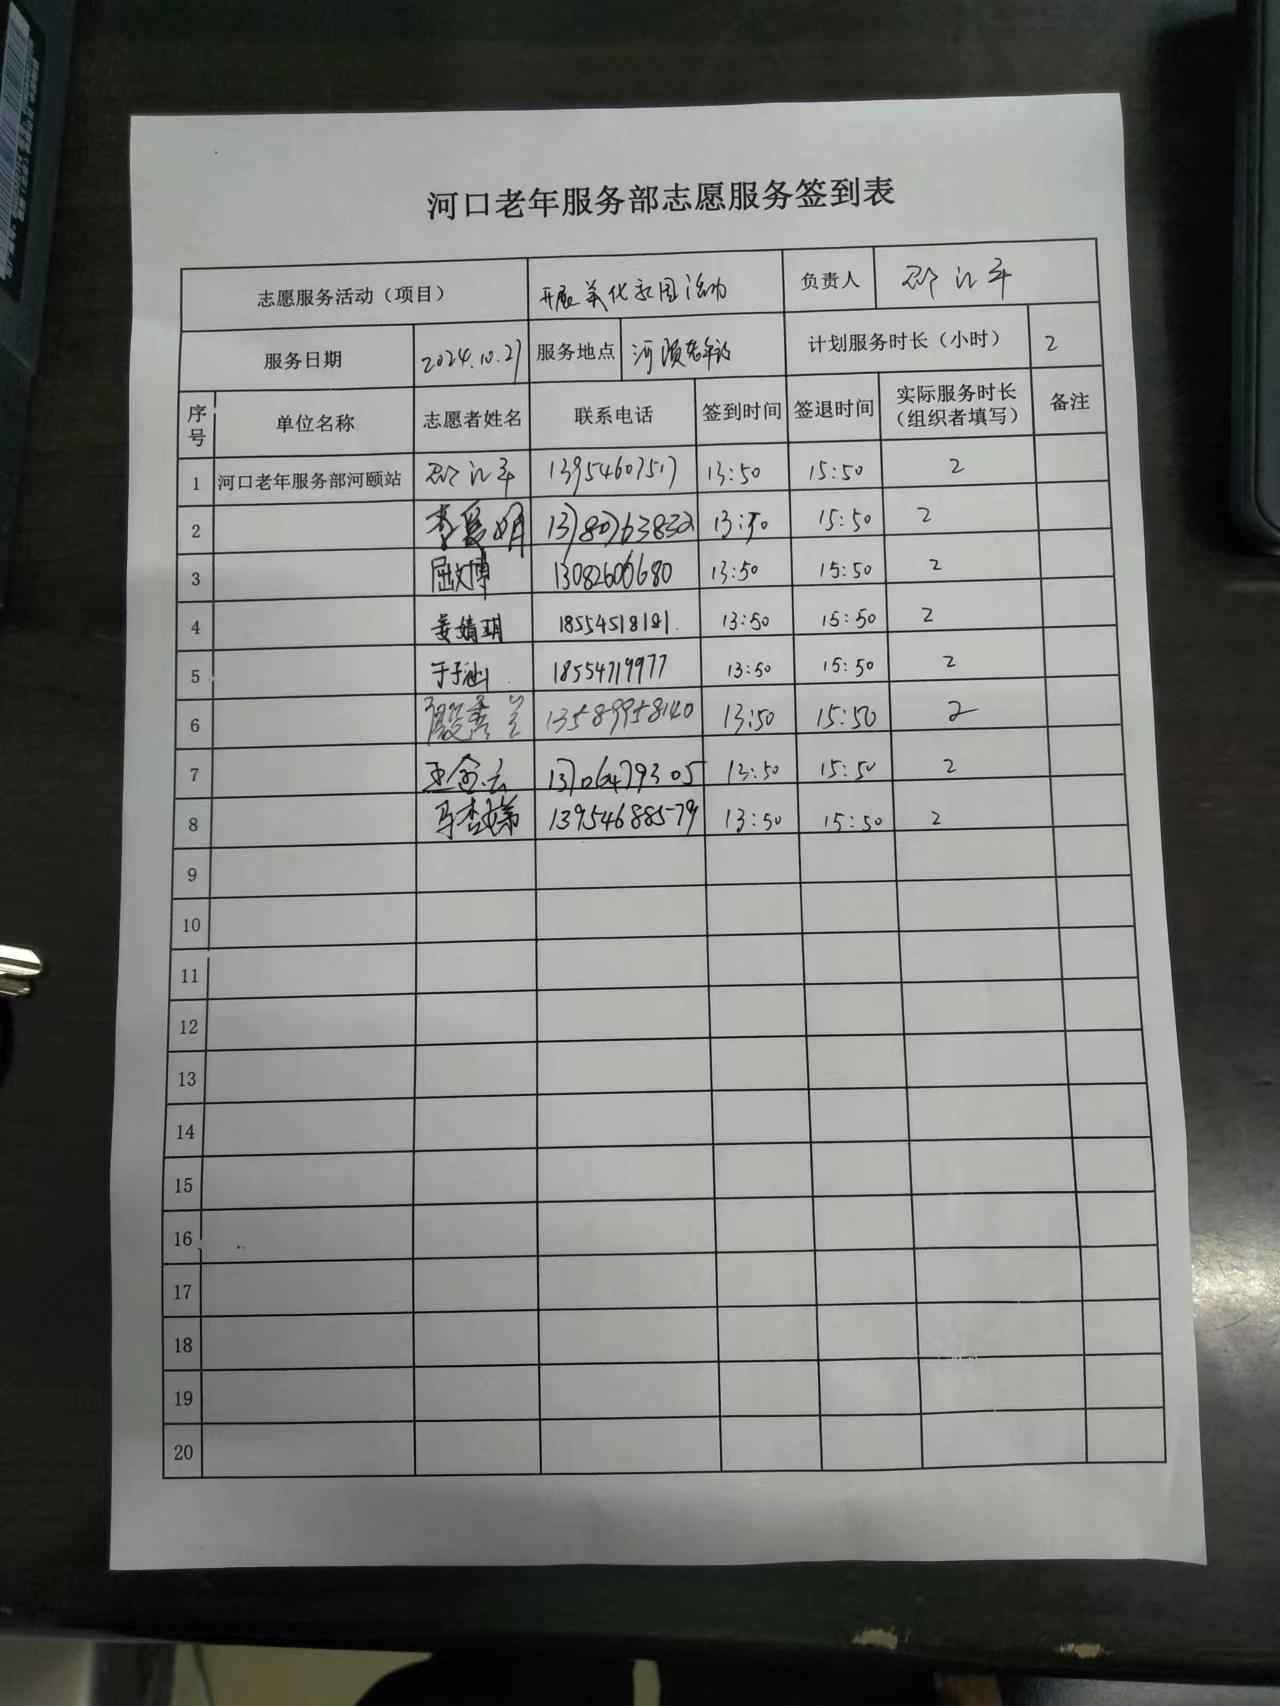 河口老年服务部志愿服务签到表
志愿服务活动（项目） 开展美化家园活动 负责人
服务日期 2024.10.27 服务地点 河颐老年 计划服务时长（小时） 2
序号 单位名称 志愿者姓名 联系电话 签到时间 签退时间 实际服务时长（组织者填写） 备注
1 河口老年服务部河颐站 13954607517 13:50 15:50 2
2 13780763832 13:50 15:50 2
3 屈文博 13082600680 13:50 15:50 2
4 姜婧玥 13:50 15:50 2
5 于子涵 18554719977 13:50 15:50 2
6 殷秀兰 13589958140 13:50 15:50 2
7 王金云 13706479305 13:50 15:50 2
8 13954688579 13:50 15:50 2
9
10
11
12
13
14
15
16
17
18
19
20